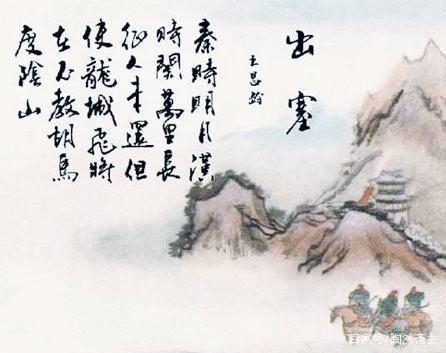 出塞
王昌齡
秦時明月漢
時關萬里長
征人未還但
使龍城飛將
在不教胡馬
度陰山
百家号/陶然斋主